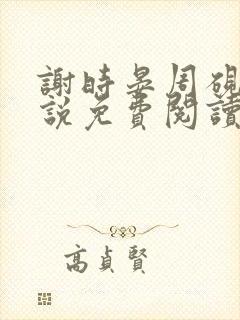 謝時晏周硯
說免費閱讀
高貞賢